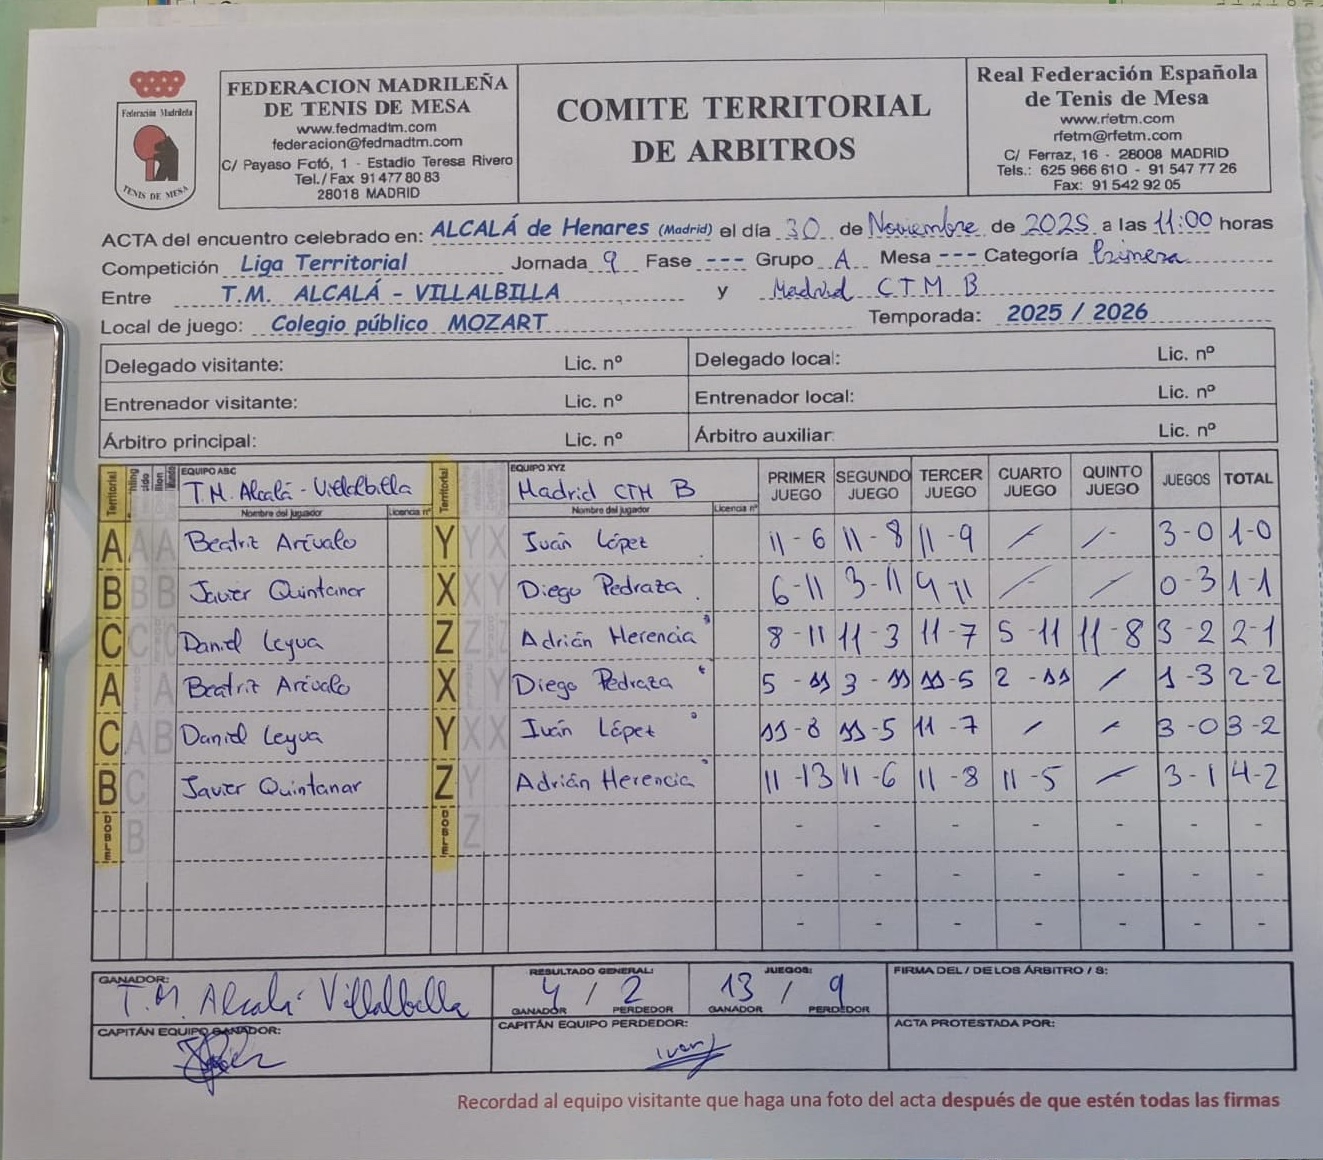 Federación Madrileña
TENIS DE MESA
FEDERACION MADRILEÑA
DE TENIS DE MESA
www.fedmadtm.com
federacion@fedmadtm.com
C/ Payaso Fofó, 1 - Estadio Teresa Rivero
Tel./Fax 91 477 80 83
28018 MADRID
COMITE TERRITORIAL
DE ARBITROS
Real Federación Española
de Tenis de Mesa
www.rfetm.com
rfetm@rfetm.com
C/ Ferraz, 16 - 28008 MADRID
Tels.: 625 966 610 - 91 547 77 26
Fax: 91 542 92 05
ACTA del encuentro celebrado en: ALCALÁ de Henares (Madrid) el día 30 de Noviembre de 2025 a las 11:00 horas
Competición Liga Territorial Jornada 9 Fase --- Grupo A Mesa --- Categoría Primera
Entre T.M. ALCALÁ - VILLALBILLA y Madrid CTM B
Local de juego: Colegio público MOZART Temporada: 2025 / 2026
Delegado visitante: Lic. nº Delegado local: Lic. nº
Entrenador visitante: Lic. nº Entrenador local: Lic. nº
Árbitro principal: Lic. nº Árbitro auxiliar: Lic. nº
Territorial EQUIPO ABC T.M. Alcalá - Villalbilla Territorial EQUIPO XYZ Madrid CTM B PRIMER JUEGO SEGUNDO JUEGO TERCER JUEGO CUARTO JUEGO QUINTO JUEGO JUEGOS TOTAL
Nombre del jugador Licencia nº Nombre del jugador Licencia nº
A A A Beatriz Arévalo Y Y X Iván López 11 - 6 11 - 8 11 - 9 / / - 3 - 0 1 - 0
B B B Javier Quintanar X X Y Diego Pedraza 6 - 11 3 - 11 9 - 11 / / 0 - 3 1 - 1
C C C Daniel Leyva Z Z Adrián Herencia 8 - 11 11 - 3 11 - 7 5 - 11 11 - 8 3 - 2 2 - 1
A A Beatriz Arévalo X Y Diego Pedraza 5 - 11 3 - 11 11 - 5 2 - 11 / 1 - 3 2 - 2
C A B Daniel Leyva Y X X Iván López 11 - 8 11 - 5 11 - 7 / / 3 - 0 3 - 2
B C Javier Quintanar Z Y Adrián Herencia 11 - 13 11 - 6 11 - 8 11 - 5 / 3 - 1 4 - 2
DOBLE B DOBLE Z - - - - - - -
- - - - - - -
- - - - - - -
GANADOR: T.M. Alcalá Villalbilla RESULTADO GENERAL: 4 / 2 GANADOR PERDEDOR JUEGOS: 13 / 9 GANADOR PERDEDOR FIRMA DEL / DE LOS ÁRBITRO / S:
CAPITÁN EQUIPO GANADOR: CAPITÁN EQUIPO PERDEDOR: Ivan ACTA PROTESTADA POR:
Recordad al equipo visitante que haga una foto del acta después de que estén todas las firmas